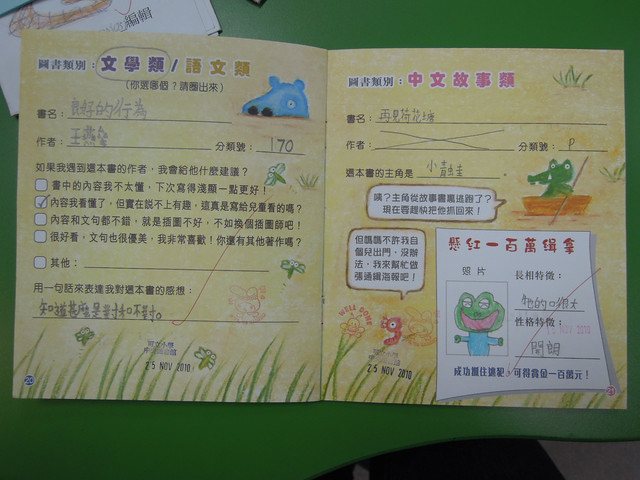 編輯
圖書類別：文學類/語文類
(你選哪個？請圈出來)
書名：良好的行為
作者：王燕
分類號：170
如果我遇到這本書的作者，我會給他什麼建議？
書中的內容我不太懂，下次寫得淺顯一點更好！
內容我看懂了，但實在說不上有趣，這真是寫給兒童看的嗎？
內容和文句都不錯，就是插圖不好，不如換個插圖師吧！
很好看，文句也很優美，我非常喜歡！你還有其他著作嗎？
其他：
用一句話來表達我對這本書的感想：
知道甚麼是對和不對。
25 NOV 2010
20
圖書類別：中文故事類
書名：再見荷花塘
作者：
分類號：P
這本書的主角是 小青蛙。
咦？主角從故事書裏逃跑了？
現在要趕快把他抓回來！
但媽媽不許我自
個兒出門，沒辦
法，我來幫忙做
張通緝海報吧！
WELL DONE
25 NOV 2010
懸紅一百萬緝拿
照片
長相特徵：
牠的口很大
性格特徵：
25 NOV 2010
開朗
成功抓住逃犯，可得賞金一百萬元！
21